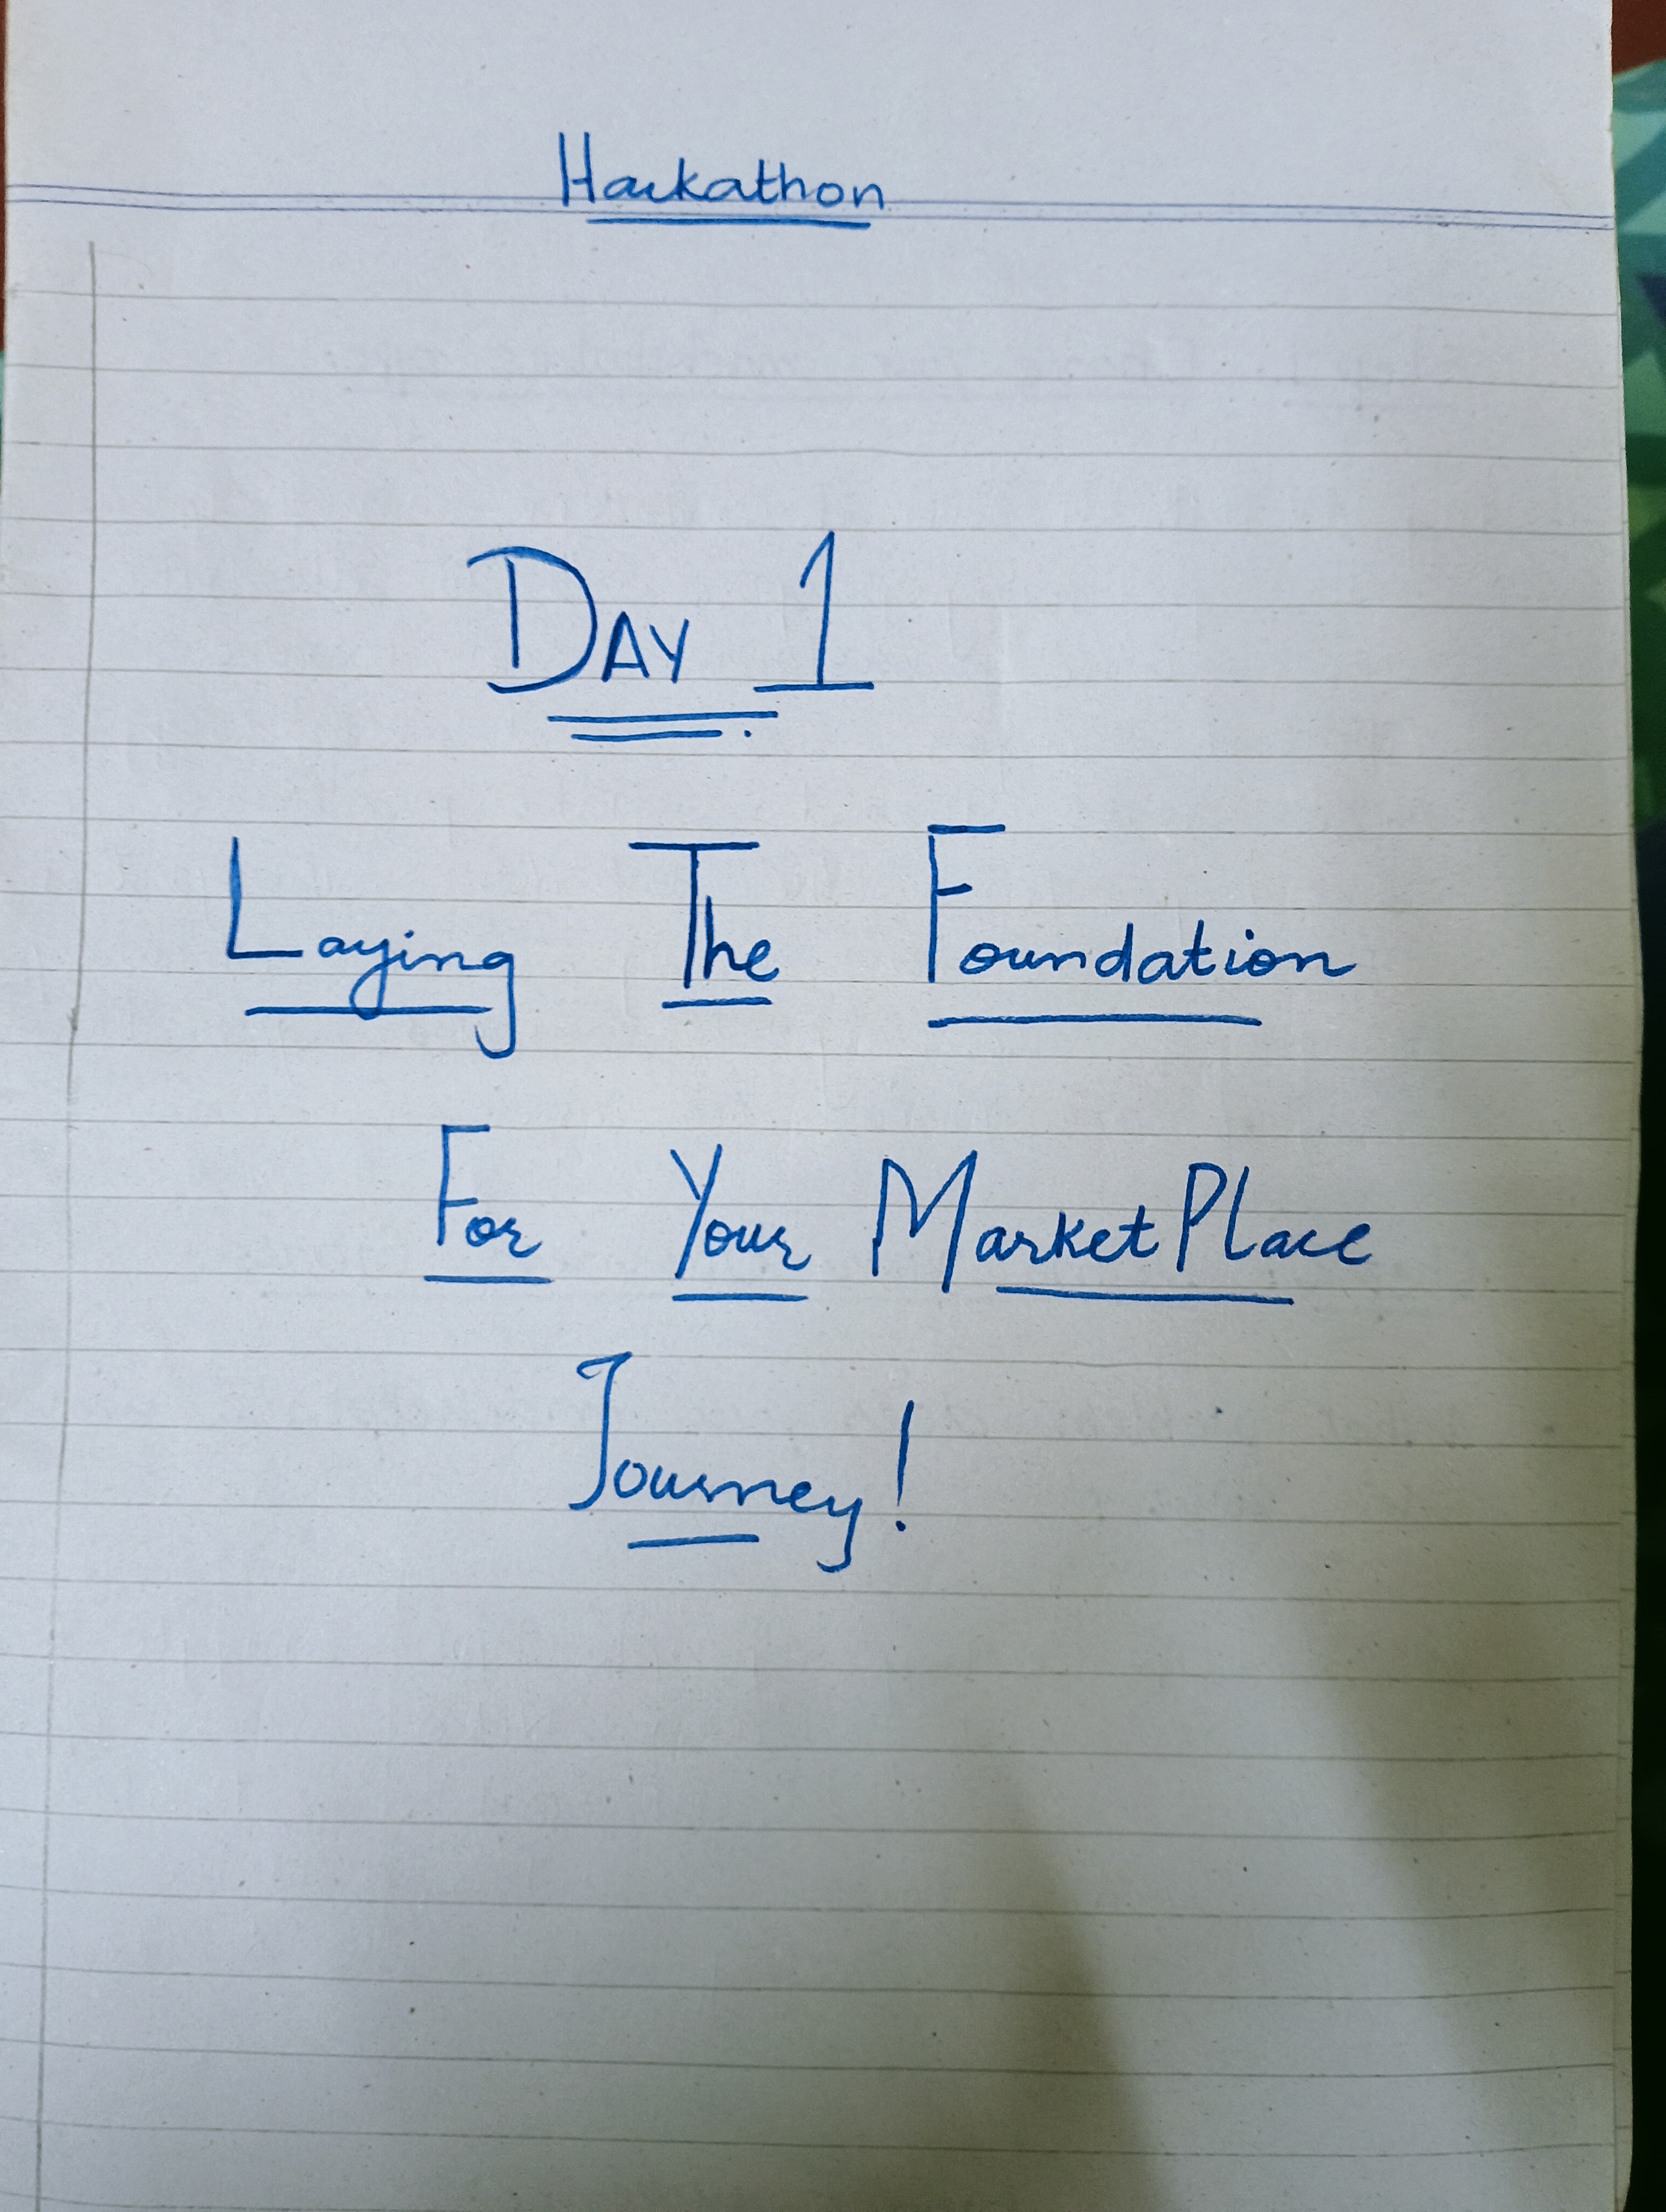 Hackathon
DAY 1
Laying The Foundation
For Your MarketPlace
Journey!